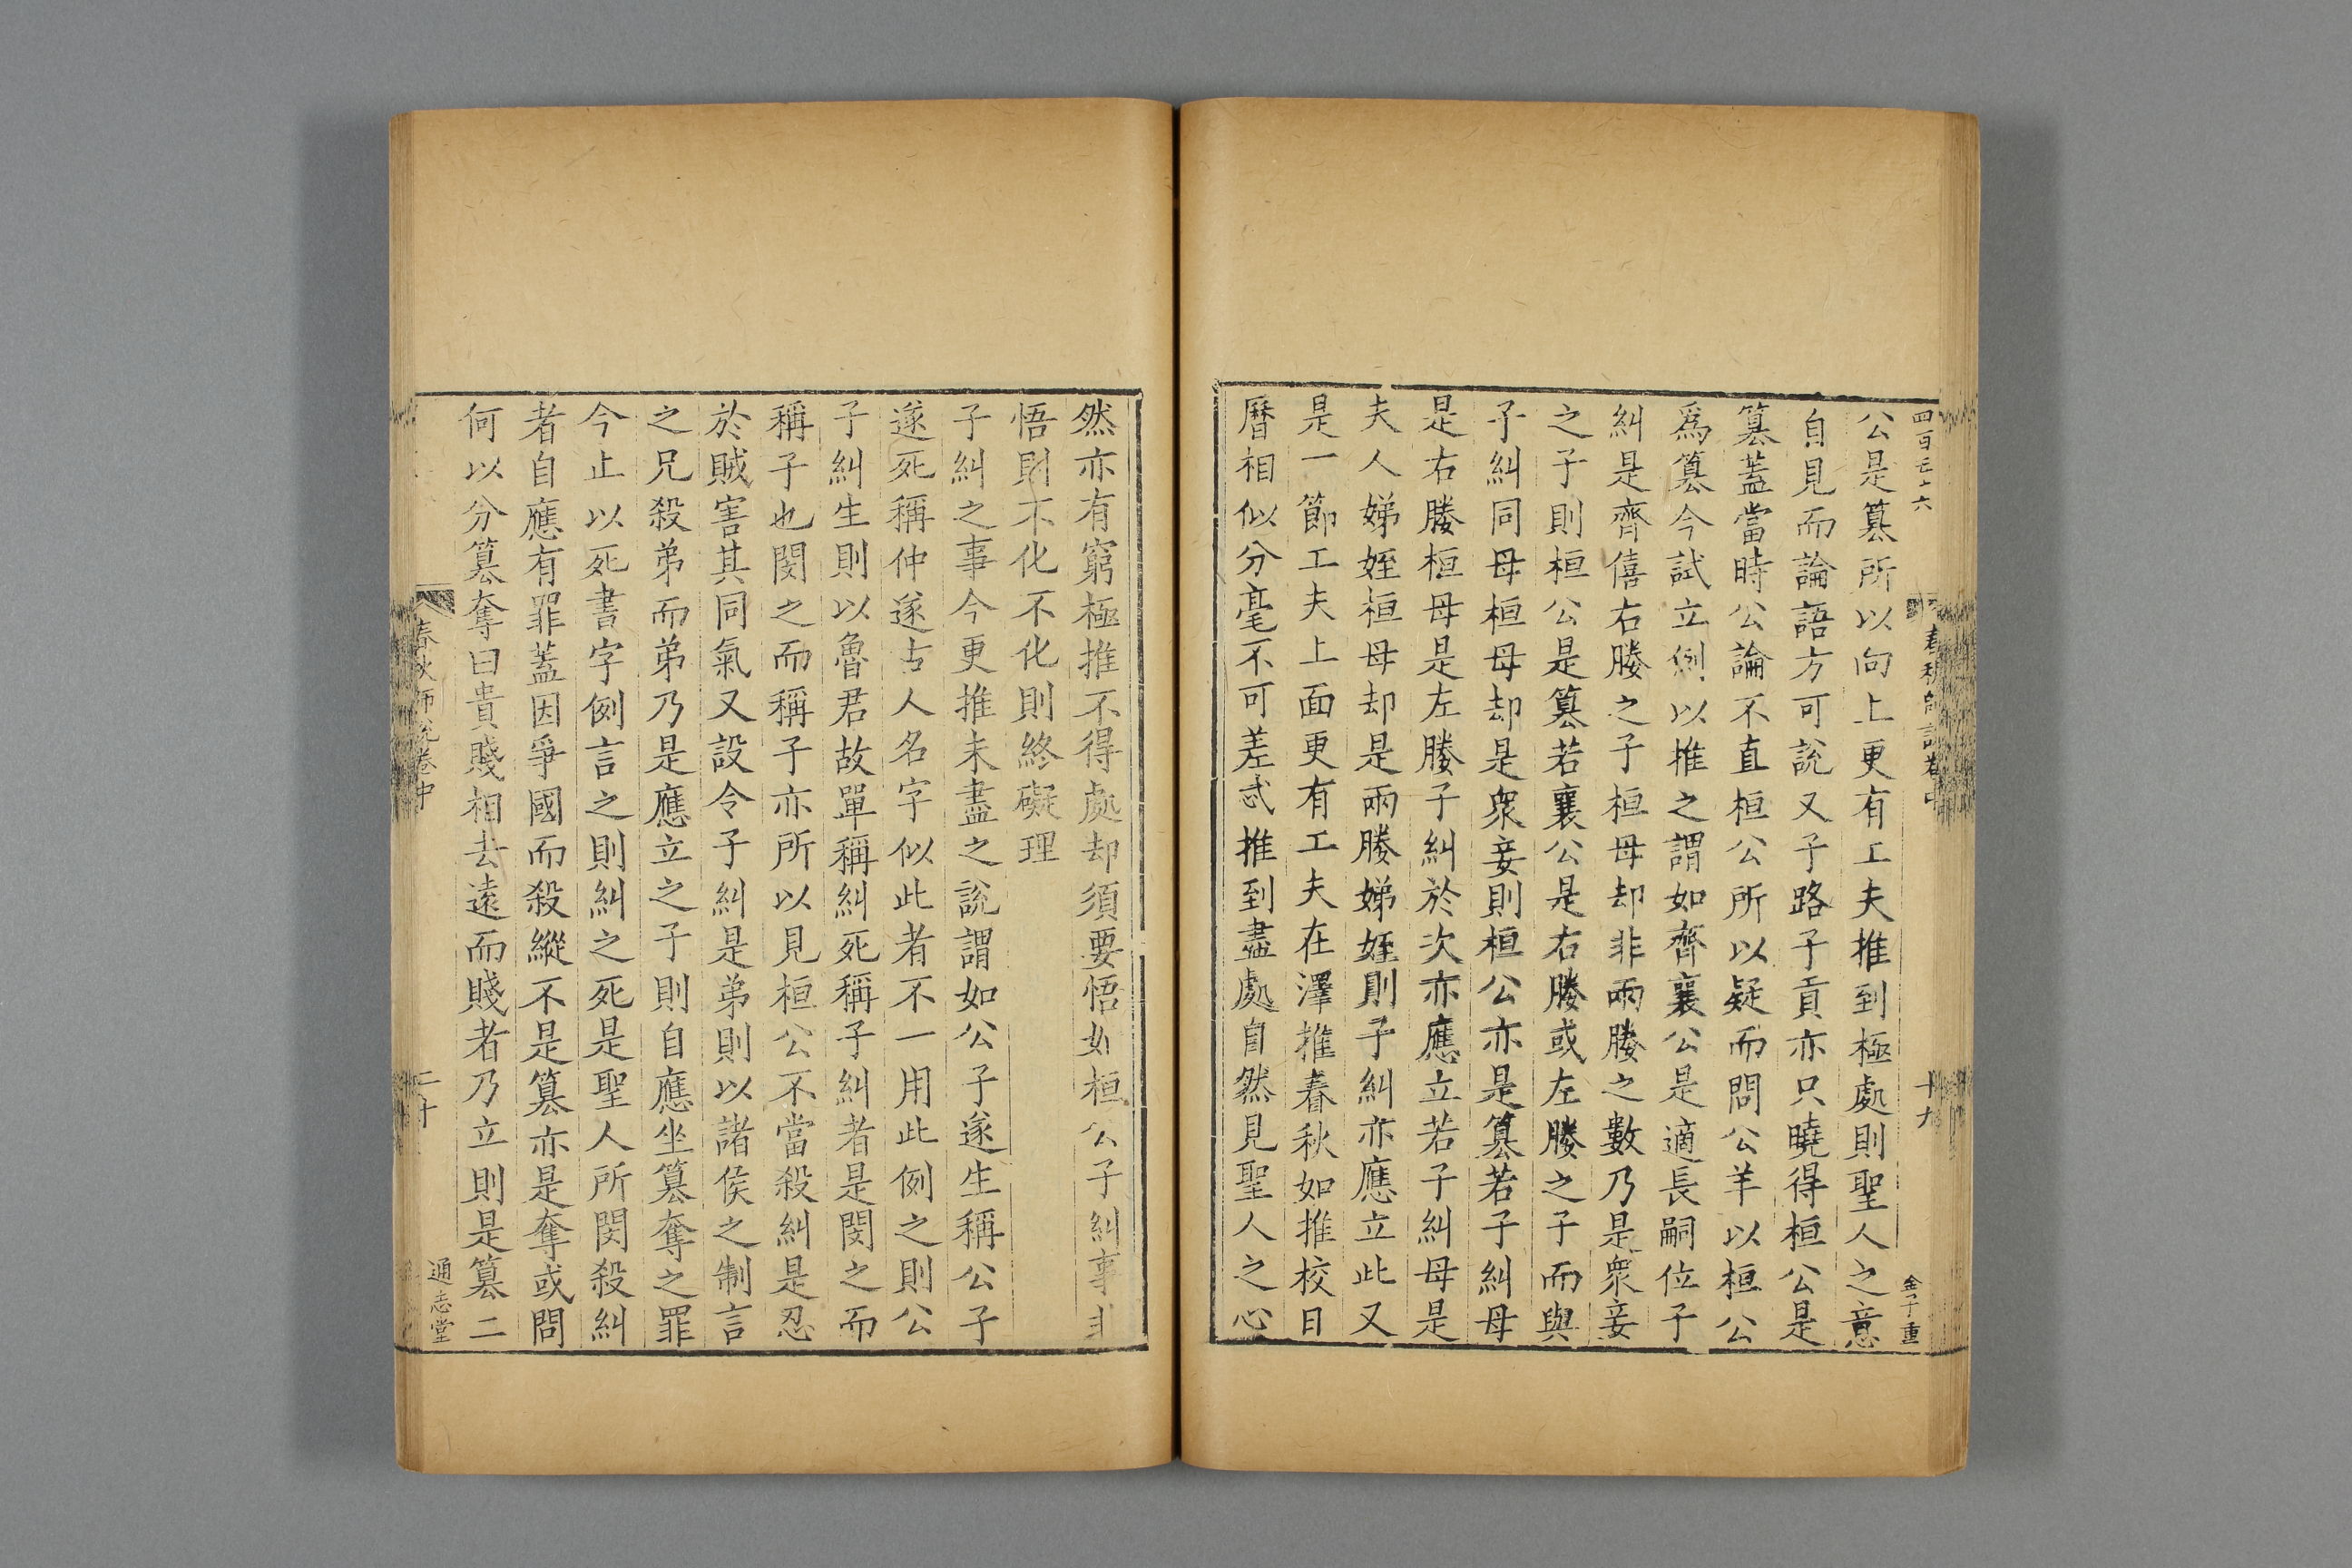 四百三十六
春秋師說卷中
十九
金子重
公是簒所以向上更有工夫推到極處則聖人之意
自見而論語方可說又子路子貢亦只曉得桓公是
簒蓋當時公論不直桓公所以疑而問公羊以桓公
爲簒今試立例以推之謂如齊襄公是適長嗣位子
糾是齊僖右媵之子桓母却非兩媵之數乃是衆妾
之子則桓公是簒若襄公是右媵或左媵之子而與
子糾同母桓母却是衆妾則桓公亦是簒若子糾母
是右媵桓母是左媵子糾於次亦應立若子糾母是
夫人娣姪桓母却是兩媵娣姪則子糾亦應立此又
是一節工夫上面更有工夫在澤推春秋如推校日
曆相似分毫不可差忒推到盡處自然見聖人之心
然亦有窮極推不得處却須要悟如桓公子糾事非
悟則不化不化則終礙理
子糾之事今更推未盡之說謂如公子遂生稱公子
遂死稱仲遂古人名字似此者不一用此例之則公
子糾生則以魯君故單稱糾死稱子糾者是閔之而
稱子也閔之而稱子亦所以見桓公不當殺糾是忍
於賊害其同氣又設令子糾是弟則以諸侯之制言
之兄殺弟而弟乃是應立之子則自應坐簒奪之罪
今止以死書字例言之則糾之死是聖人所閔殺糾
者自應有罪蓋因爭國而殺縱不是簒亦是奪或問
何以分簒奪曰貴賤相去遠而賤者乃立則是簒二
春秋師說卷中
二十
通志堂